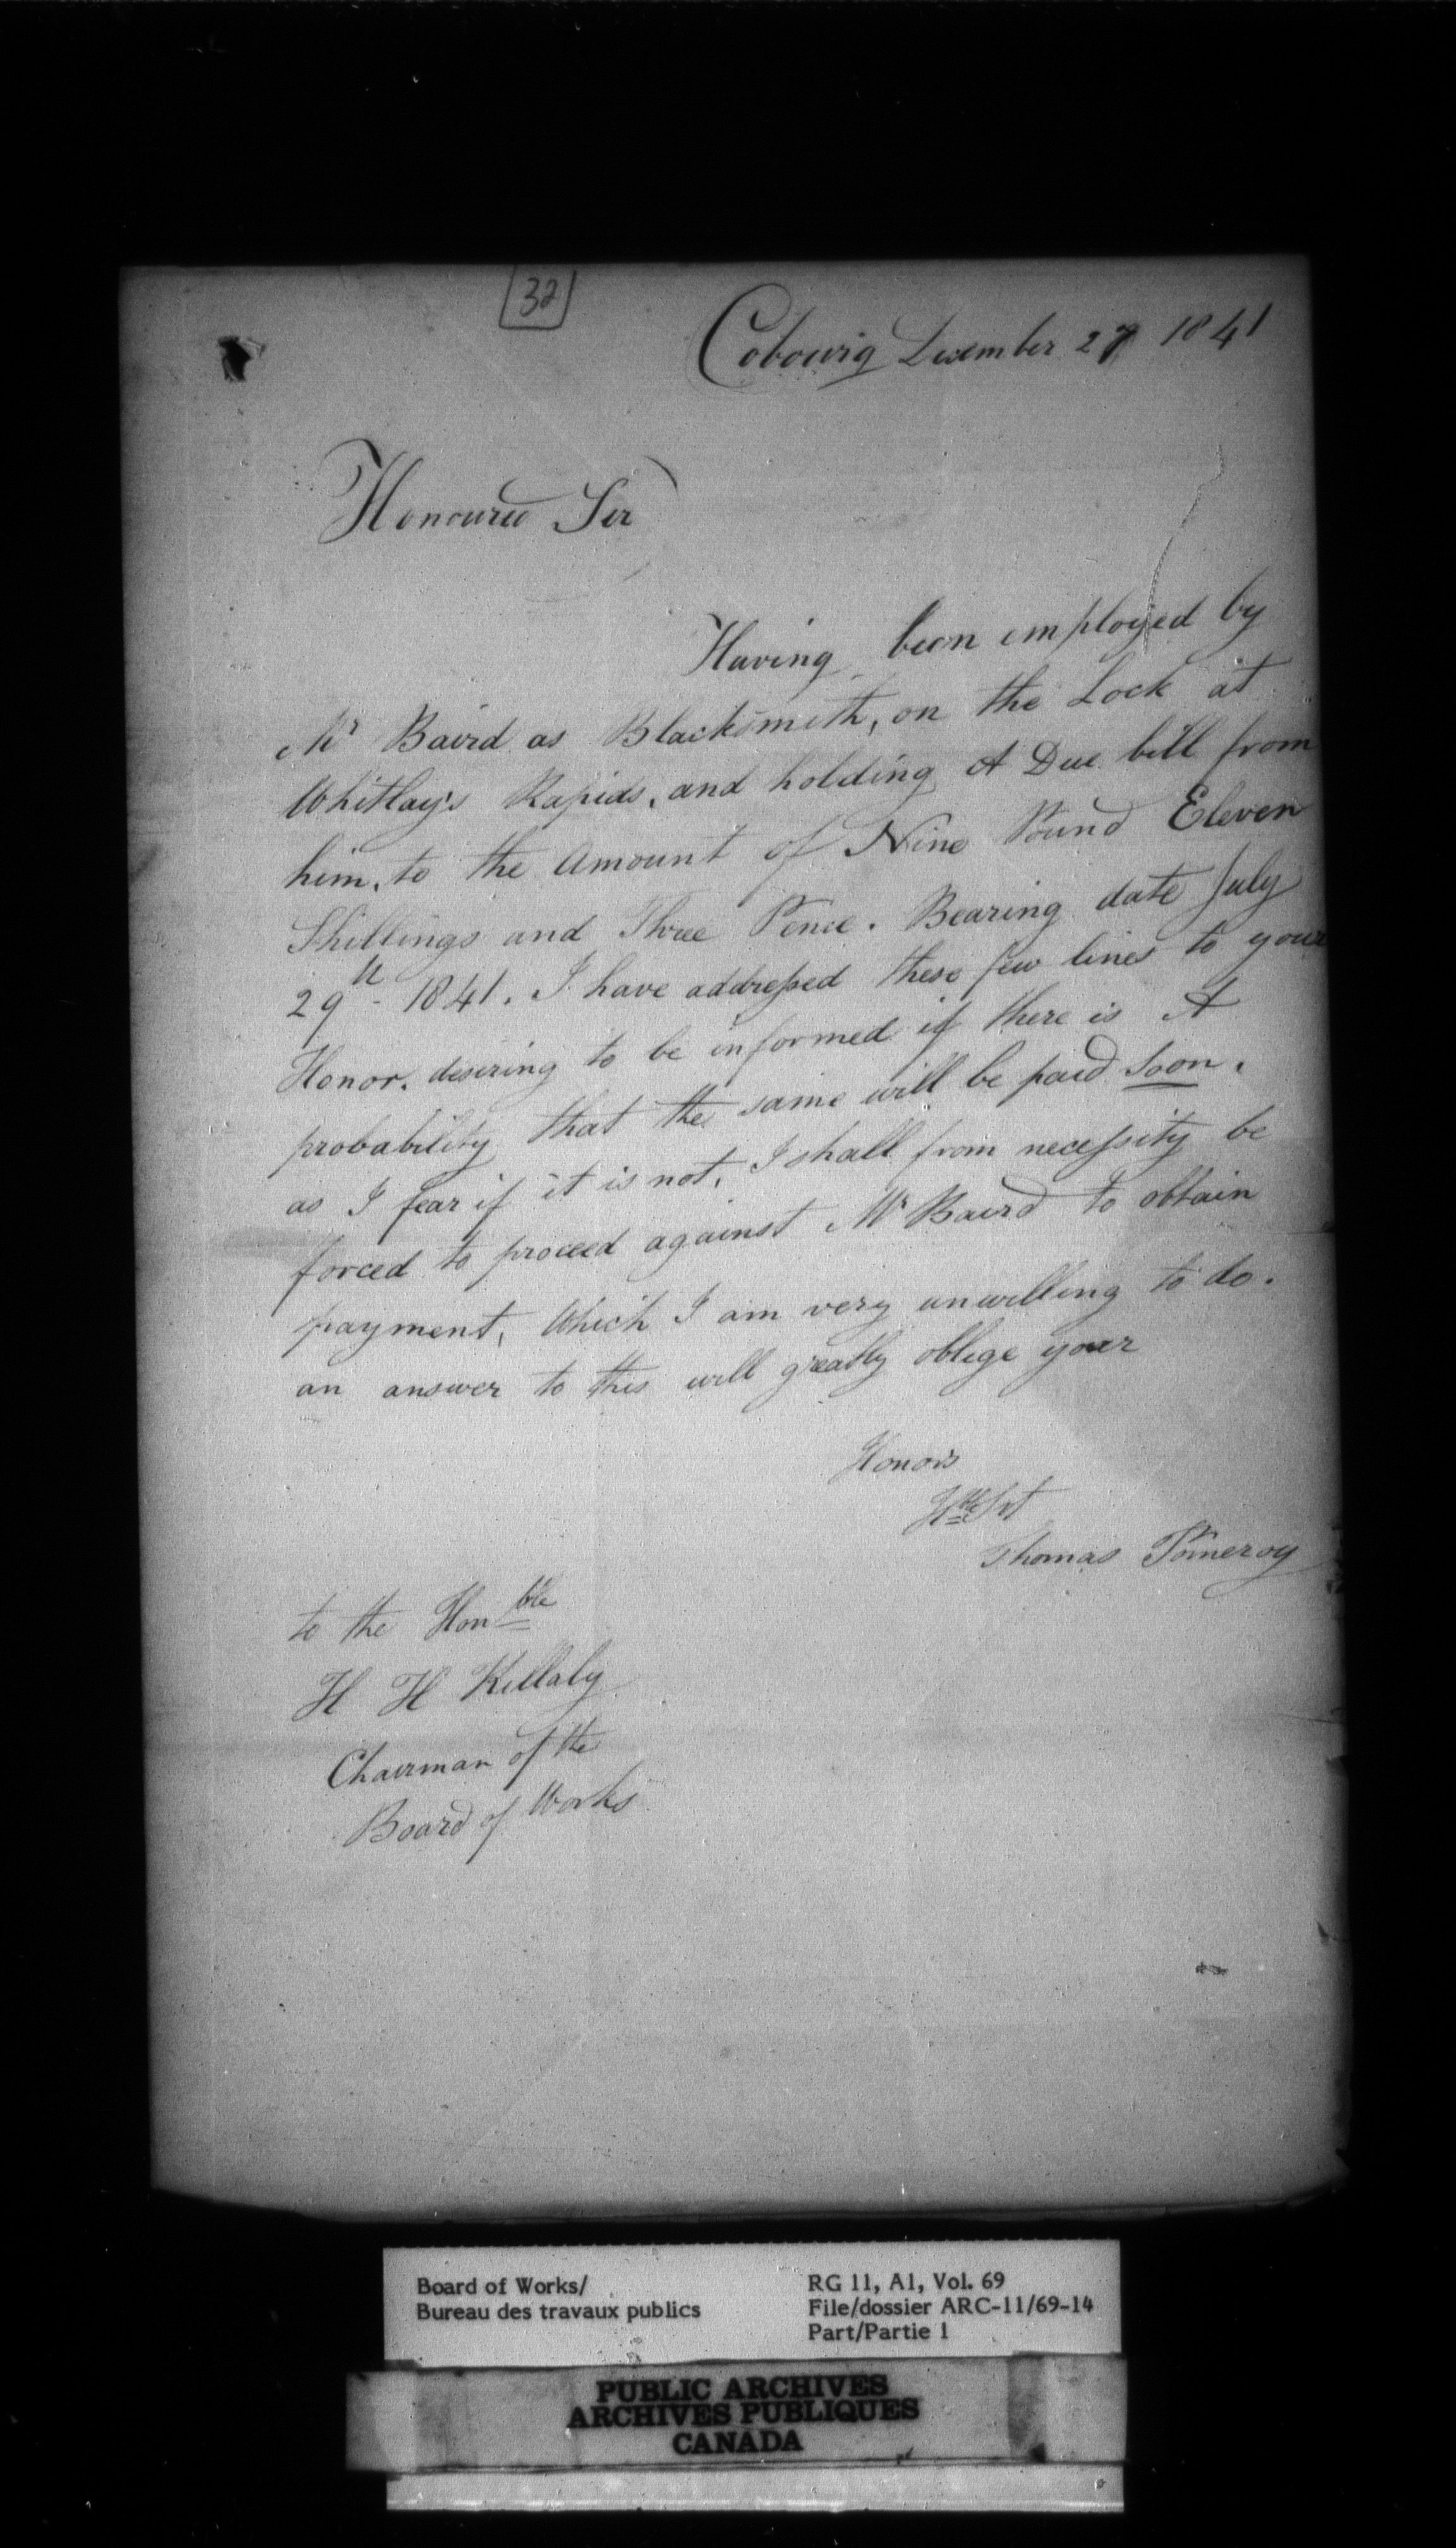 32
Cobourg December 27 1841
Honoured Sir
Having been employed by
Mr Baird as Blacksmith, on the Lock at
Whitlay's Rapids, and holding A Due bill from
him, to the Amount of Nine Pound Eleven
Shillings and Three Pence. Bearing date July
29th 1841. I have addressed these few lines to your
Honor. desiring to be informed if there is A
probability that the same will be paid Soon.
as I fear if it is not, I shall from necessity be
forced to proceed against Mr Baird to obtain
payment, Which I am very unwilling to do.
an answer to this will greatly oblige your
Honors
Hble Srt
Thomas Pomeroy
to the Honble
H H Killaly
Chairman of the
Board of Works
Board of Works/
Bureau des travaux publics
RG 11, A1, Vol. 69
File/dossier ARC-11/69-14
Part/Partie 1
PUBLIC ARCHIVES
ARCHIVES PUBLIQUES
CANADA